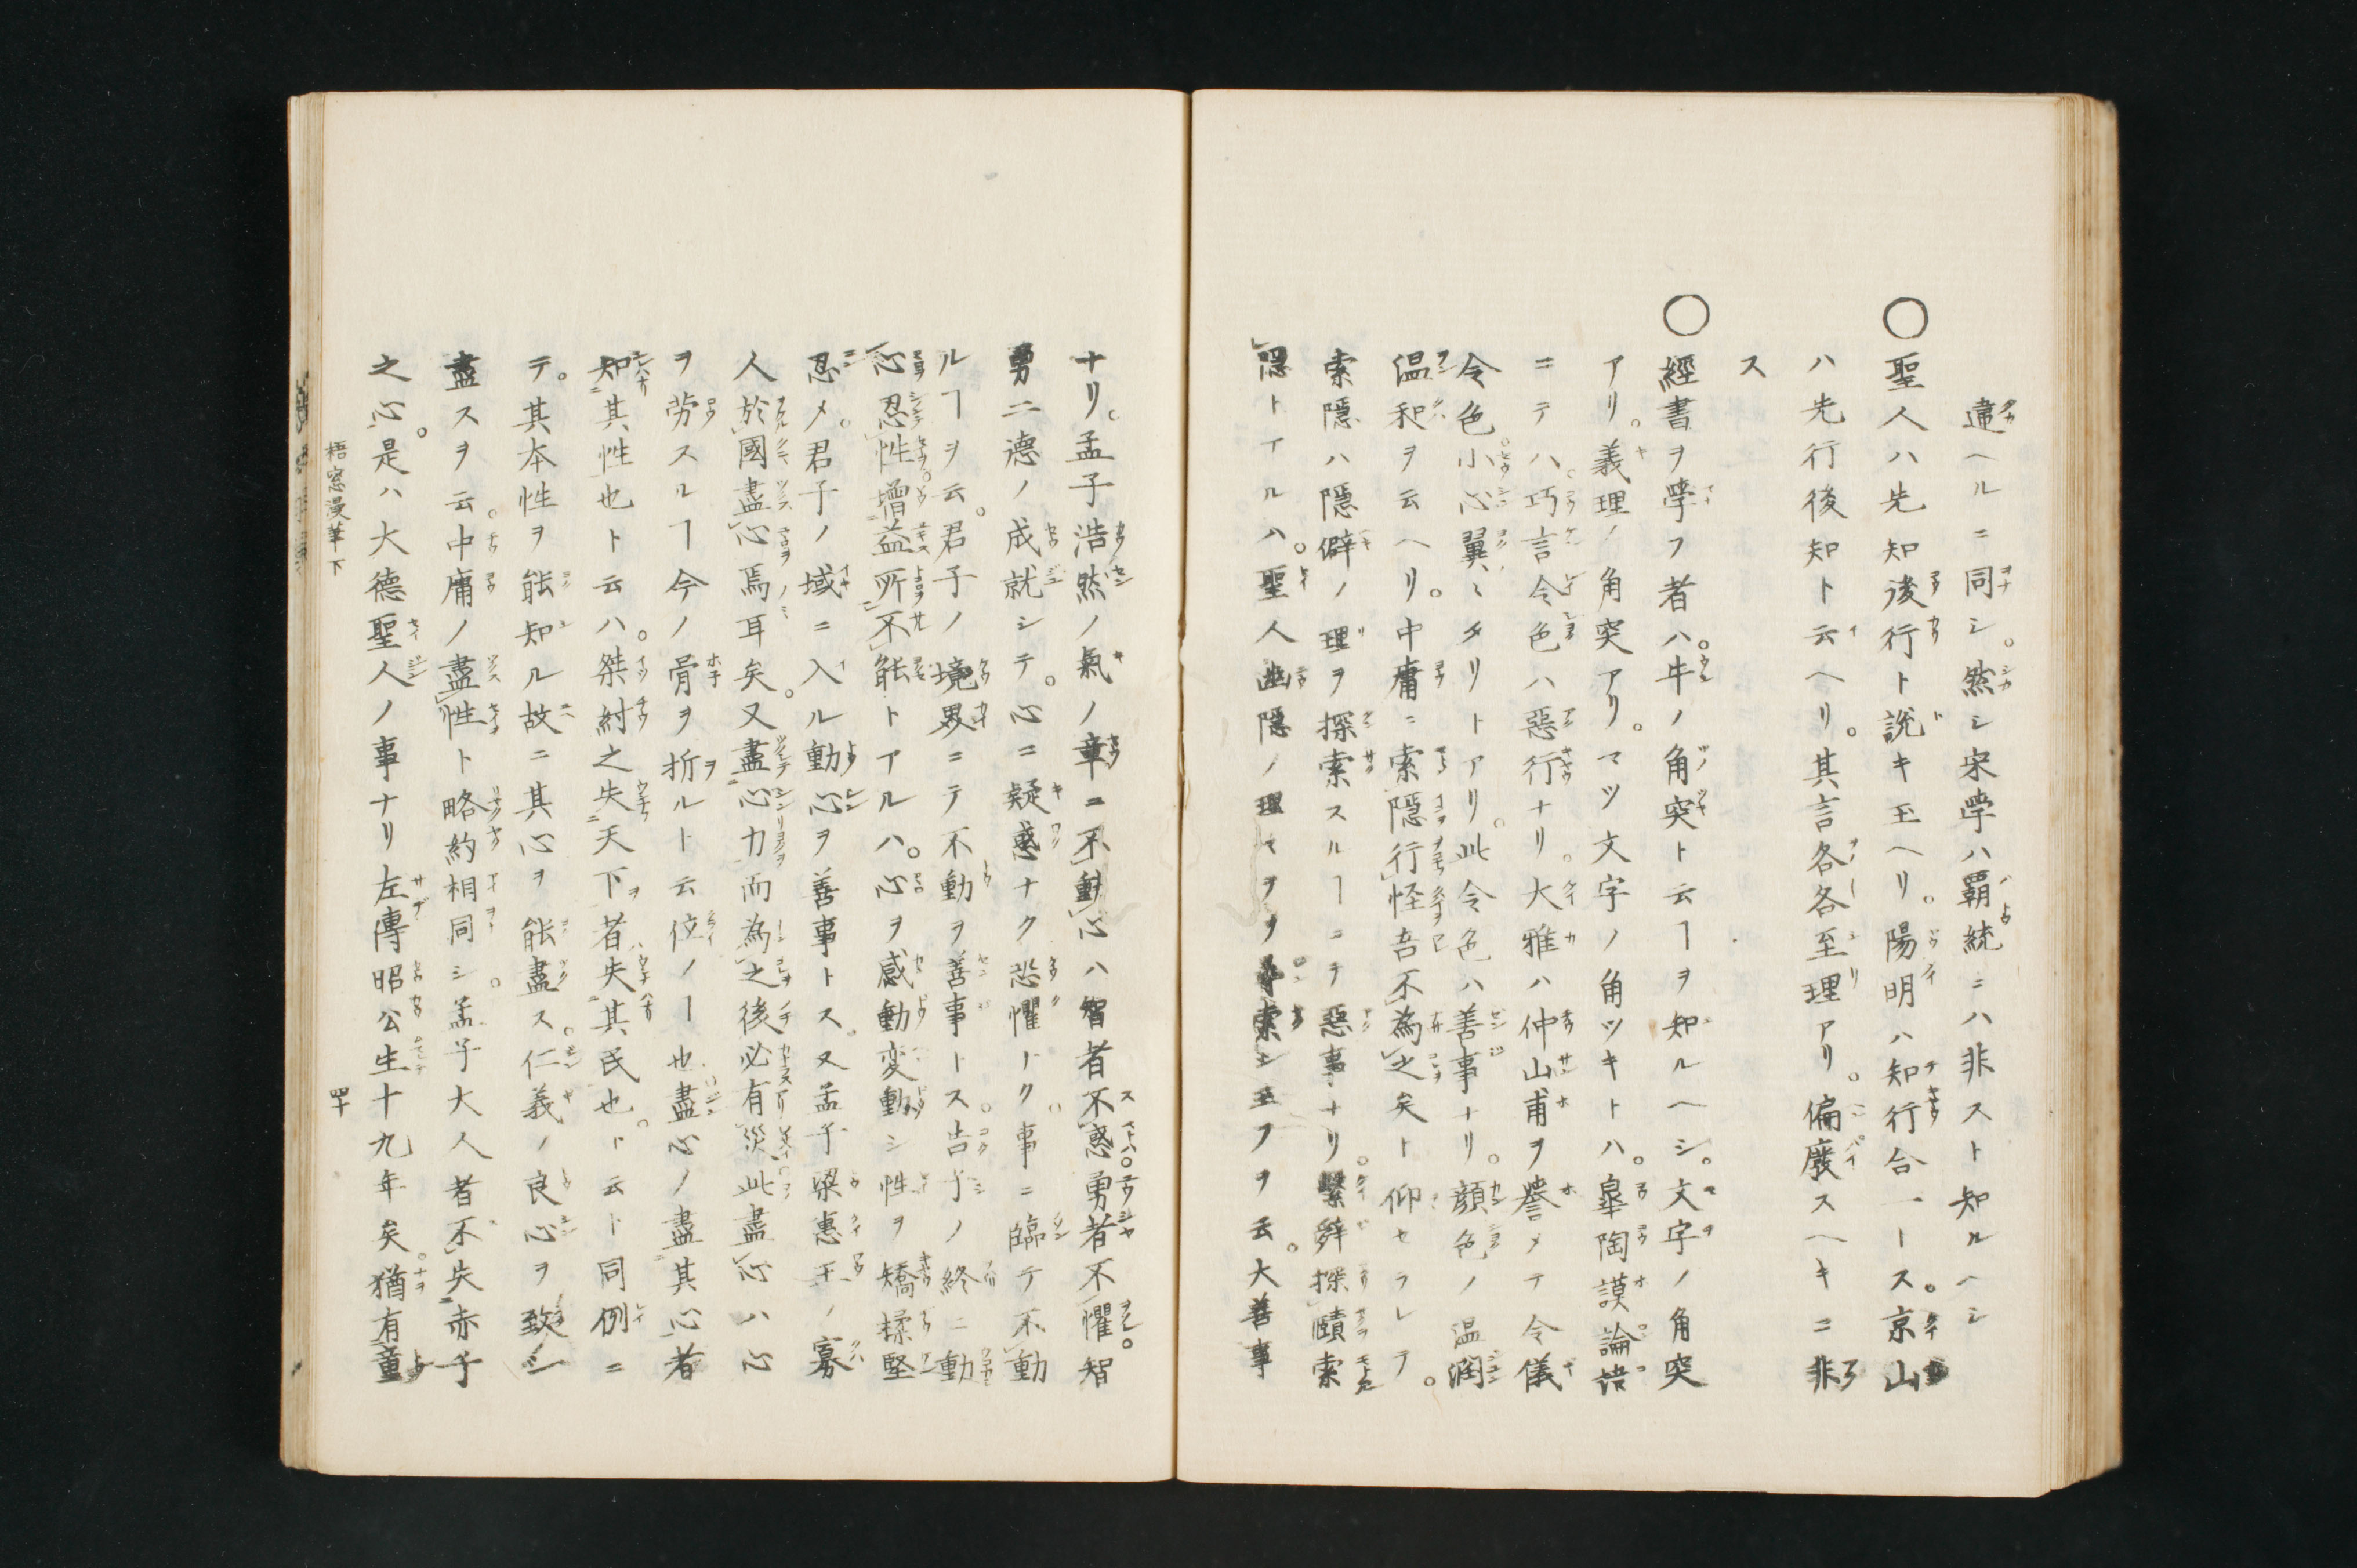 違ヘルニ同シ。然シ宋學ハ覇統ニハ非スト知ルヘシ
〇聖人ハ先知後行ト説キ玉ヘリ。陽明ハ知行合一トス。京山
ハ先行後知ト云ヘリ。其言各各至理アリ。偏廢スヘキニ非
ス
〇經書ヲ學フ者ハ。牛ノ角突ト云ヿヲ知ルヘシ。文字ノ角突
アリ。義理ノ角突アリ。マツ文字ノ角ツキトハ。皐陶謨論語
ニテハ。巧言令色ハ惡行ナリ。大雅ハ仲山甫ヲ譽メテ令儀
令色。小心翼〻タリトアリ。此令色ハ善事ナリ。顔色ノ温潤
温和ヲ云ヘリ。中庸ニ索隱行怪吾不為之矣ト仰セラレテ。
索隱ハ隱僻ノ理ヲ探索スルヿニテ惡事ナリ。繫辭探賾索
隱トイルハ。聖人幽隱ノ理ヲ索シ玉フヲ云。大善事
ナリ。孟子浩然ノ氣ノ章ニ不動心ハ智者不惑勇者不懼。智
勇二德ノ成就シテ。心ニ疑惑ナク恐懼ナク。事ニ臨テ不動
ルヿヲ云。君子ノ境界ニテ不動ヲ善事トス。告子ノ終ニ動
心忍性。增益所不能トアルハ。心ヲ感動変動シ性ヲ矯揉堅
忍メ。君子ノ域ニ入ル動心ヲ善事トス。又孟子梁惠王ノ寡
人於國盡心焉耳矣。又盡心力而為之後必有災。此盡心ハ心
ヲ労スルヿ今ノ骨ヲ折ルト云位ノヿ也。盡心ノ盡其心者
知其性也ト云ハ。桀紂之失天下者失其民也。ト云ト同例ニ
テ。其本性ヲ能知ル故ニ其心ヲ能盡ス。仁義ノ良心ヲ致シ
盡スヲ云。中庸ノ盡性ト略約相同シ。孟子大人者不失赤子
之心。是ハ大德聖人ノ事ナリ左傳昭公生十九年矣。猶有童
梧窓漫筆下
四十